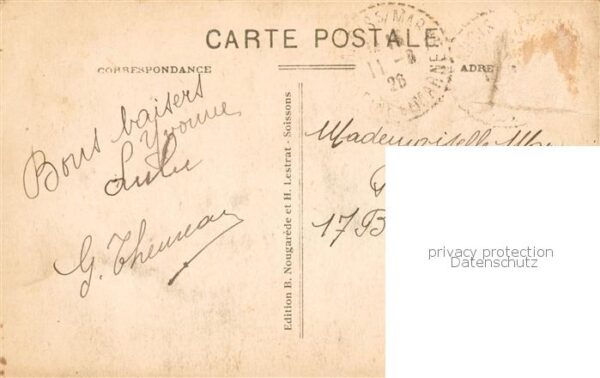 CARTE POSTALE
CORRESPONDANCE
ADRE
11 -8
26
Bons baisers
Yvonne
G. Theuneau
Edition B. Nougarède et H. Lestrat - Soissons
Mademoiselle
17 B
privacy protection
Datenschutz